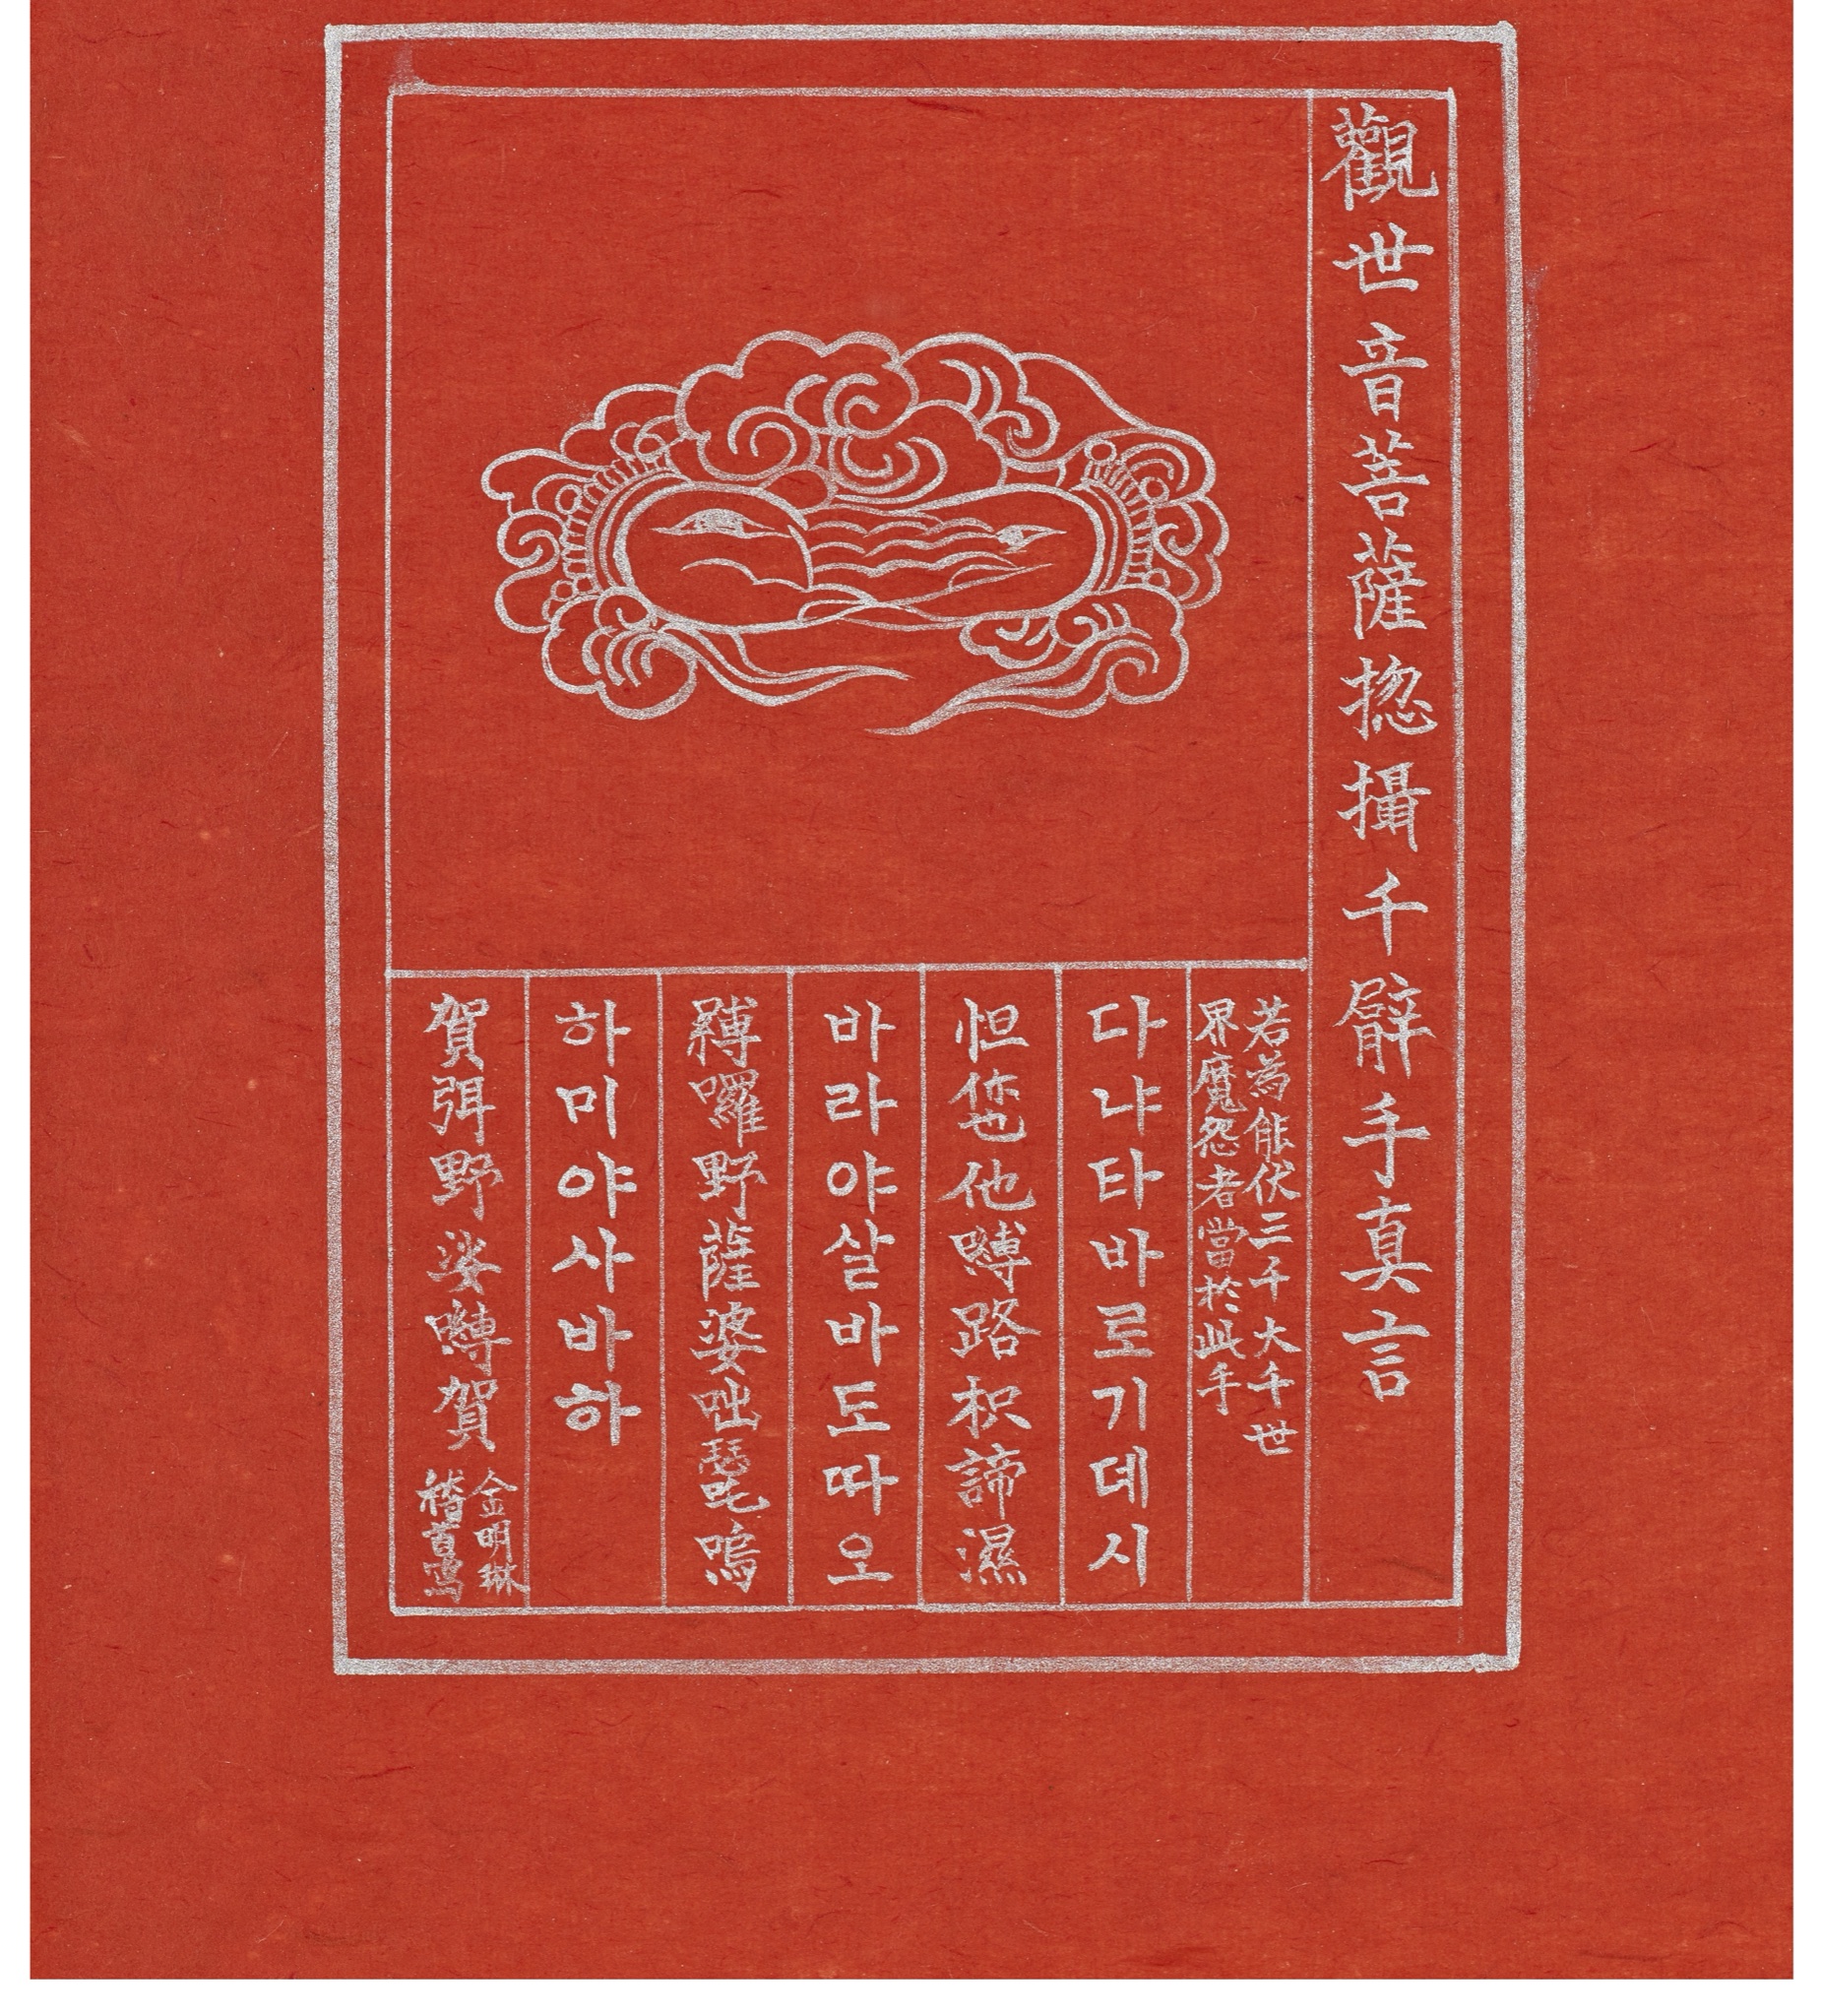 觀世音菩薩揔攝千臂手真言
若為能伏三千大千世
界魔怨者當於此手
다냐타바로기데시
怛儅他嚩路枳諦濕
바라야살바도따오
嚩囉野薩婆咄瑟吒嗚
하미야사바하
賀弭野娑嚩賀
金明琳
稽首寫